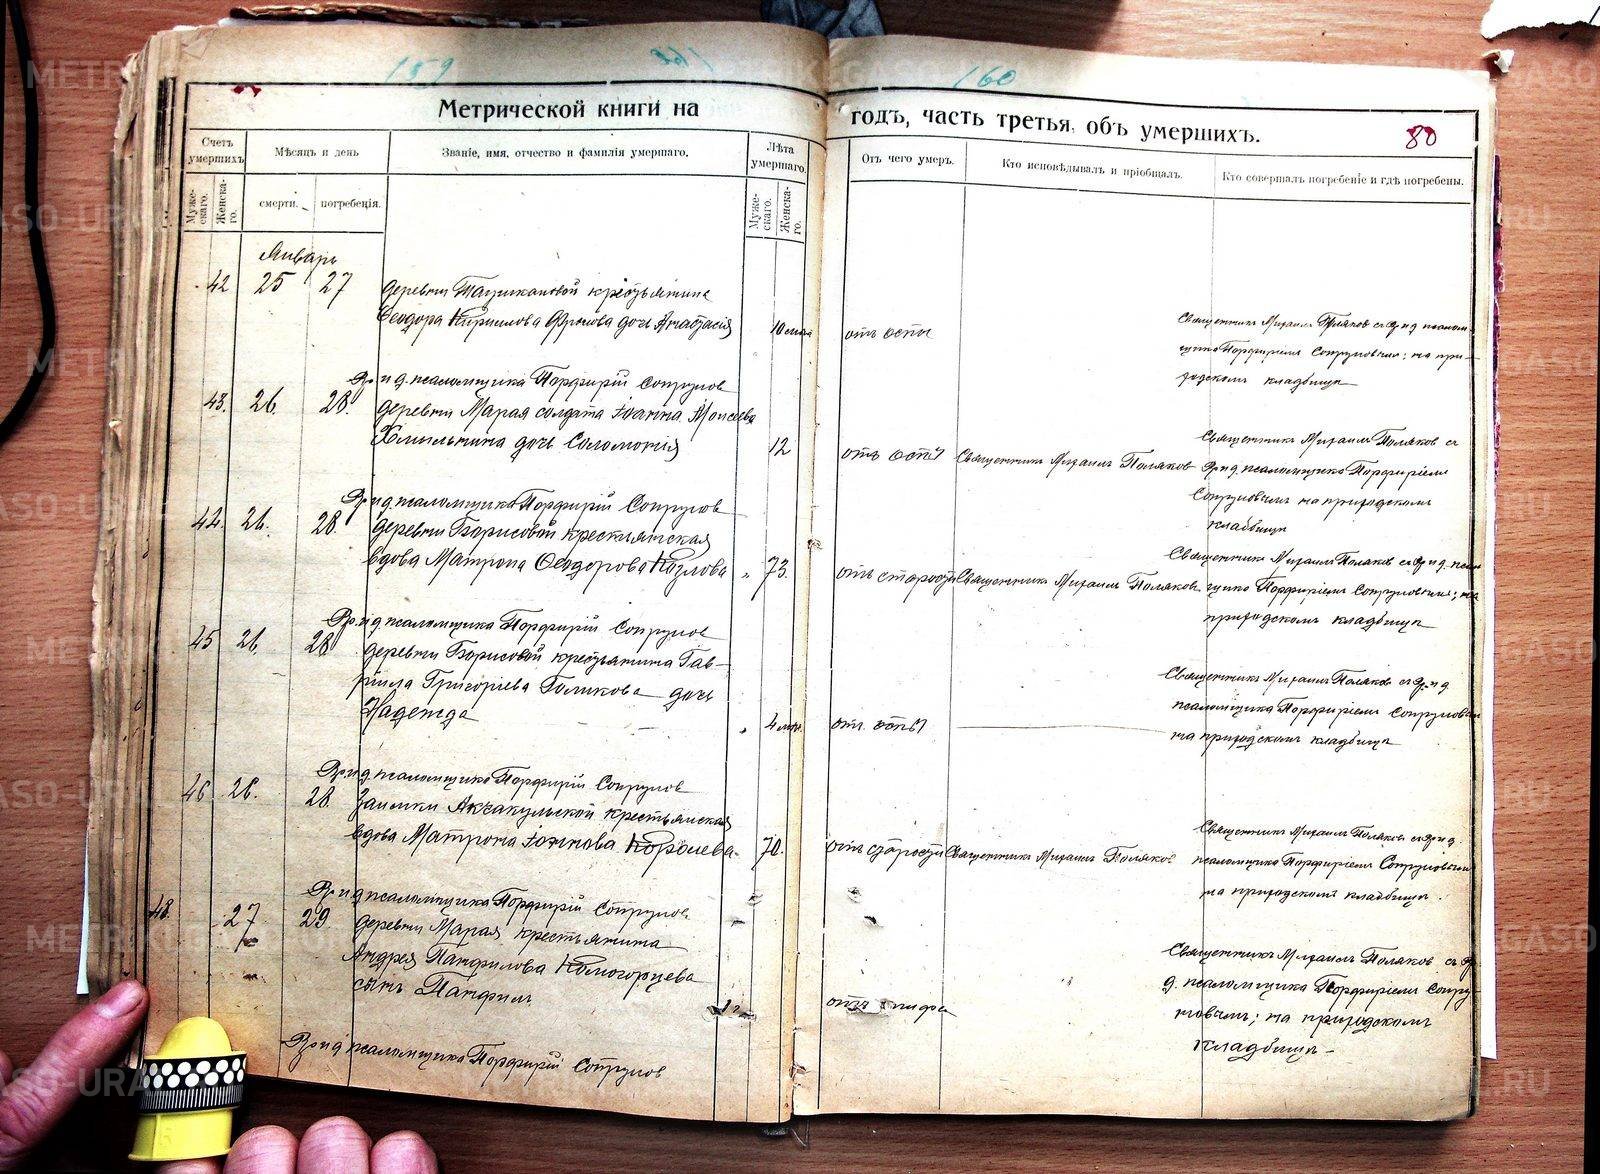 159
160
Метрической книги на
годъ, часть третья, объ умершихъ.
80
Счетъ умершихъ.
Мѣсяцъ и день
Званіе, имя, отчество и фамилія умершаго.
Лѣта умершаго.
Отъ чего умеръ.
Кто исповѣдывалъ и пріобщалъ.
Кто совершалъ погребеніе и гдѣ погребены.
Муже-скаго.
Женска-го.
смерти.
погребенія.
Муже-скаго.
Женска-го.
Январь
42 25 27 деревни крестьянина
Ѳеодора Кириллова Фролова дочь Анастасія 10 отъ оспы
Священникъ Михаилъ Поляковъ съ и д псалом-
щика Порфиріемъ Сопруновымъ; на при-
ходскомъ кладбищѣ
и д. псаломщика Порфирій Сопрунов
43. 26. 28. деревни Марая солдата Іоанна Моисеева
Хмылькина дочь Соломонія 12 отъ оспы Священникъ Михаилъ Поляков
Священникъ Михаилъ Поляков съ
и д. псаломщика Порфиріемъ
Сопруновымъ на приходскомъ
кладбищѣ
и д. псаломщика Порфирій Сопрунов
44. 26. 28 деревни Борисовой крестьянская
вдова Матрона Ѳеодорова Козлова 73. отъ старости Священникъ Михаилъ Поляков
Священникъ Михаилъ Поляков съ и д. псалом
щика Порфиріемъ Сопруновымъ; на
приходскомъ кладбищѣ
и д. псаломщика Порфирій Сопрунов
45 26. 28 деревни Борисовой крестьянина Гав-
ріила Григоріева Голикова дочь
Надежда 4 мѣс. отъ оспы
Священникъ Михаилъ Поляков съ и д.
псаломщика Порфиріемъ Сопруновым
на приходскомъ кладбищѣ
и д. псаломщика Порфирій Сопрунов
46 26. 28. Заимки Акчакульской крестьянская
вдова Матрона Іоаннова Королева. 70. отъ старости Священникъ Михаилъ Поляков
Священникъ Михаилъ Поляков съ и д.
псаломщика Порфиріемъ Сопруновымъ
на приходскомъ кладбищѣ.
и д псаломщика Порфирій Сопрунов
48. 27 29. деревни Марая крестьянина
Андрея Панфилова Коногорцева
сынъ Панфилъ отъ тифа
Священникъ Михаилъ Поляков съ
д. псаломщика Порфиріемъ Сопру-
новымъ; на приходскомъ
кладбищѣ
и д псаломщика Порфирій Сопрунов